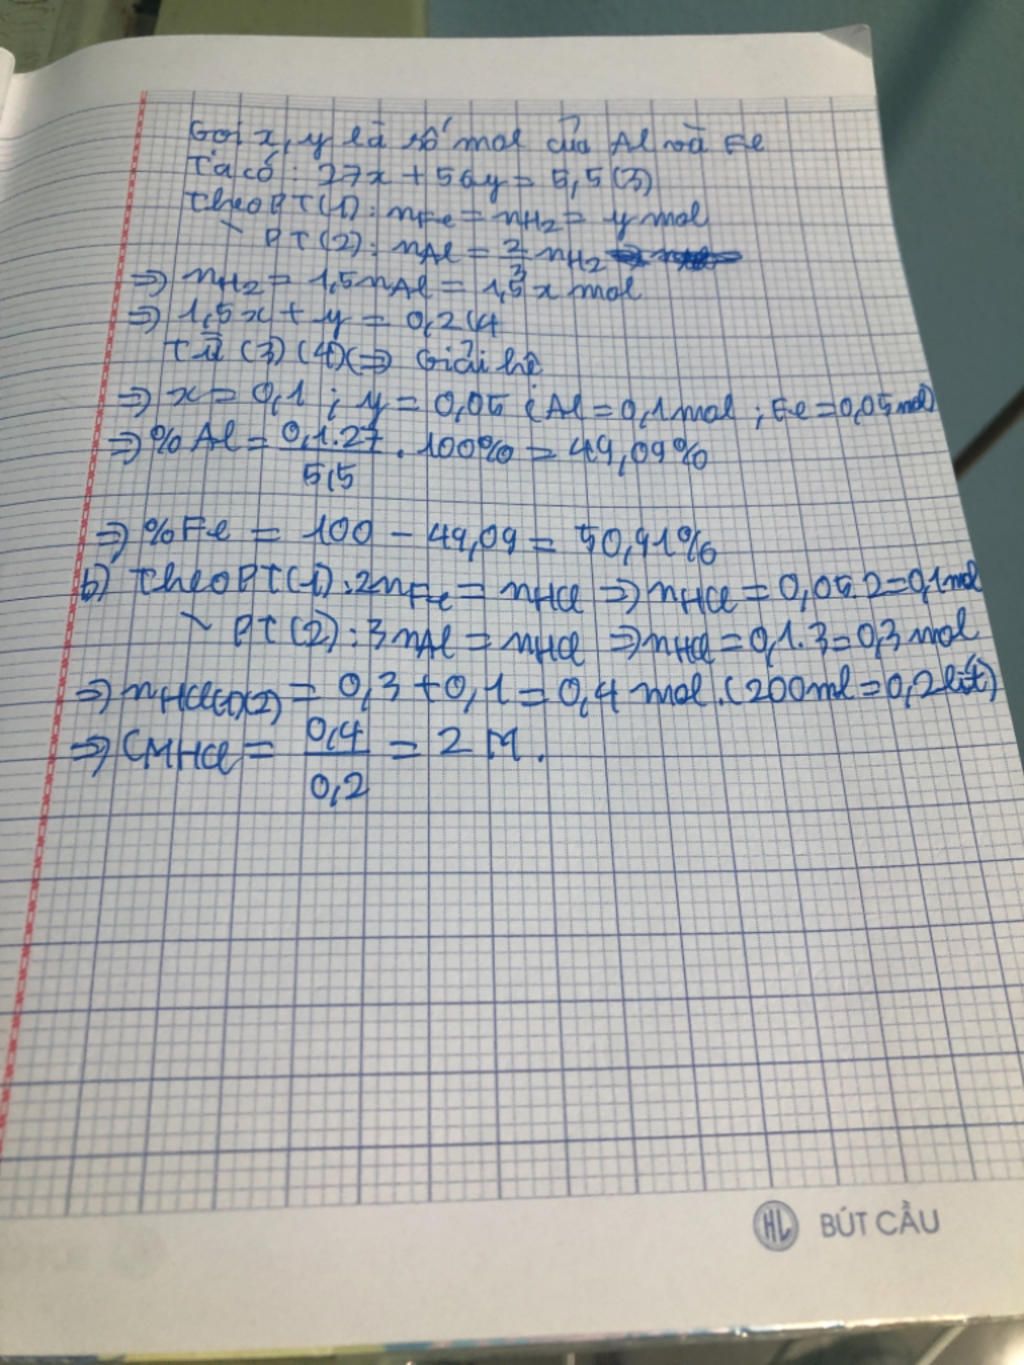 Gọi x, y là số mol của Al và Fe
Ta có: 27x + 56y = 5,5 (3)
Theo PT(1): nFe = nH2 = y mol
~ PT(2): nAl = 2/3 nH2
=> nH2 = 1,5nAl = 1,5x mol
=> 1,5x + y = 0,2 (4
Từ (3) (4) (=> Giải hệ
=> x = 0,1 ; y = 0,05 (Al = 0,1 mol ; Fe = 0,05 mol)
=> % Al = 0,1.27/5,5 . 100% = 49,09%
=> % Fe = 100 - 49,09 = 50,91%
b) Theo PT(1): 2nFe = nHCl => nHCl = 0,05.2 = 0,1 mol
~ PT(2): 3nAl = nHCl => nHCl = 0,1.3 = 0,3 mol
=> nHCl(1)(2) = 0,3 + 0,1 = 0,4 mol. (200ml = 0,2 lít)
=> CMHCl = 0,4/0,2 = 2 M.
HL BÚT CẦU